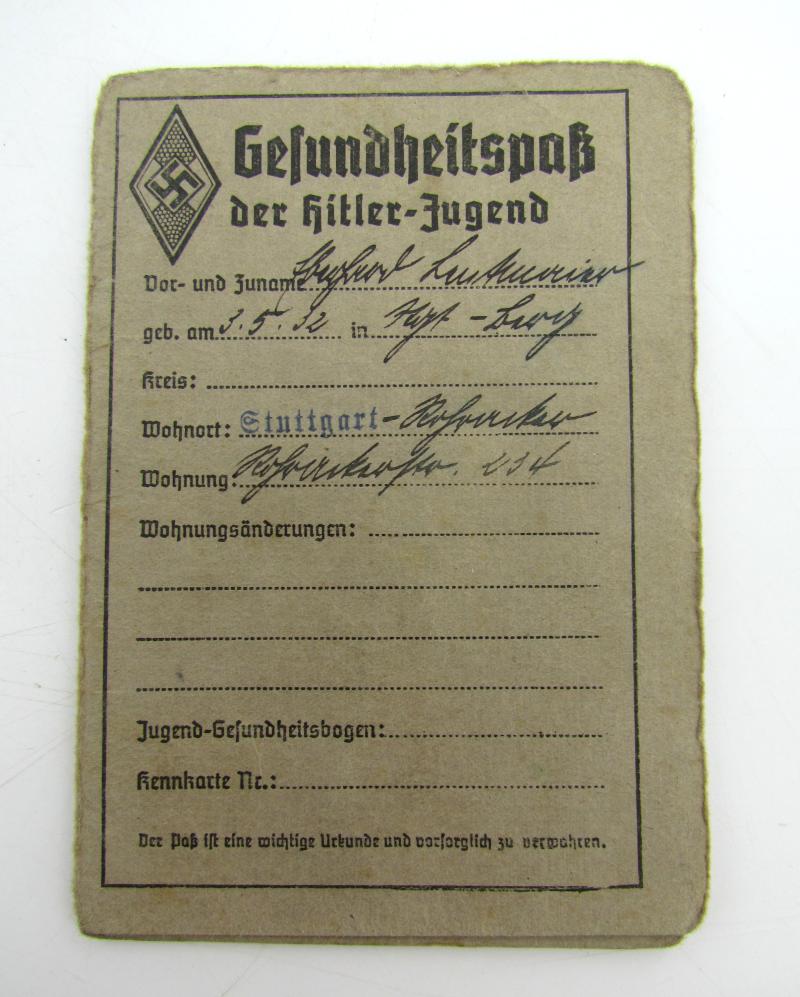 Gesundheitspaß
der Hitler-Jugend
Vor- und Zuname
geb. am 3. 5. 32 in Stgt - Berg
Kreis:
Wohnort: Stuttgart - Rohracker
Wohnung: Rohrackerstr. 234
Wohnungsänderungen:
Jugend-Gesundheitsbogen:
Kennkarte Nr.:
Der Paß ist eine wichtige Urkunde und vorsorglich zu verwahren.